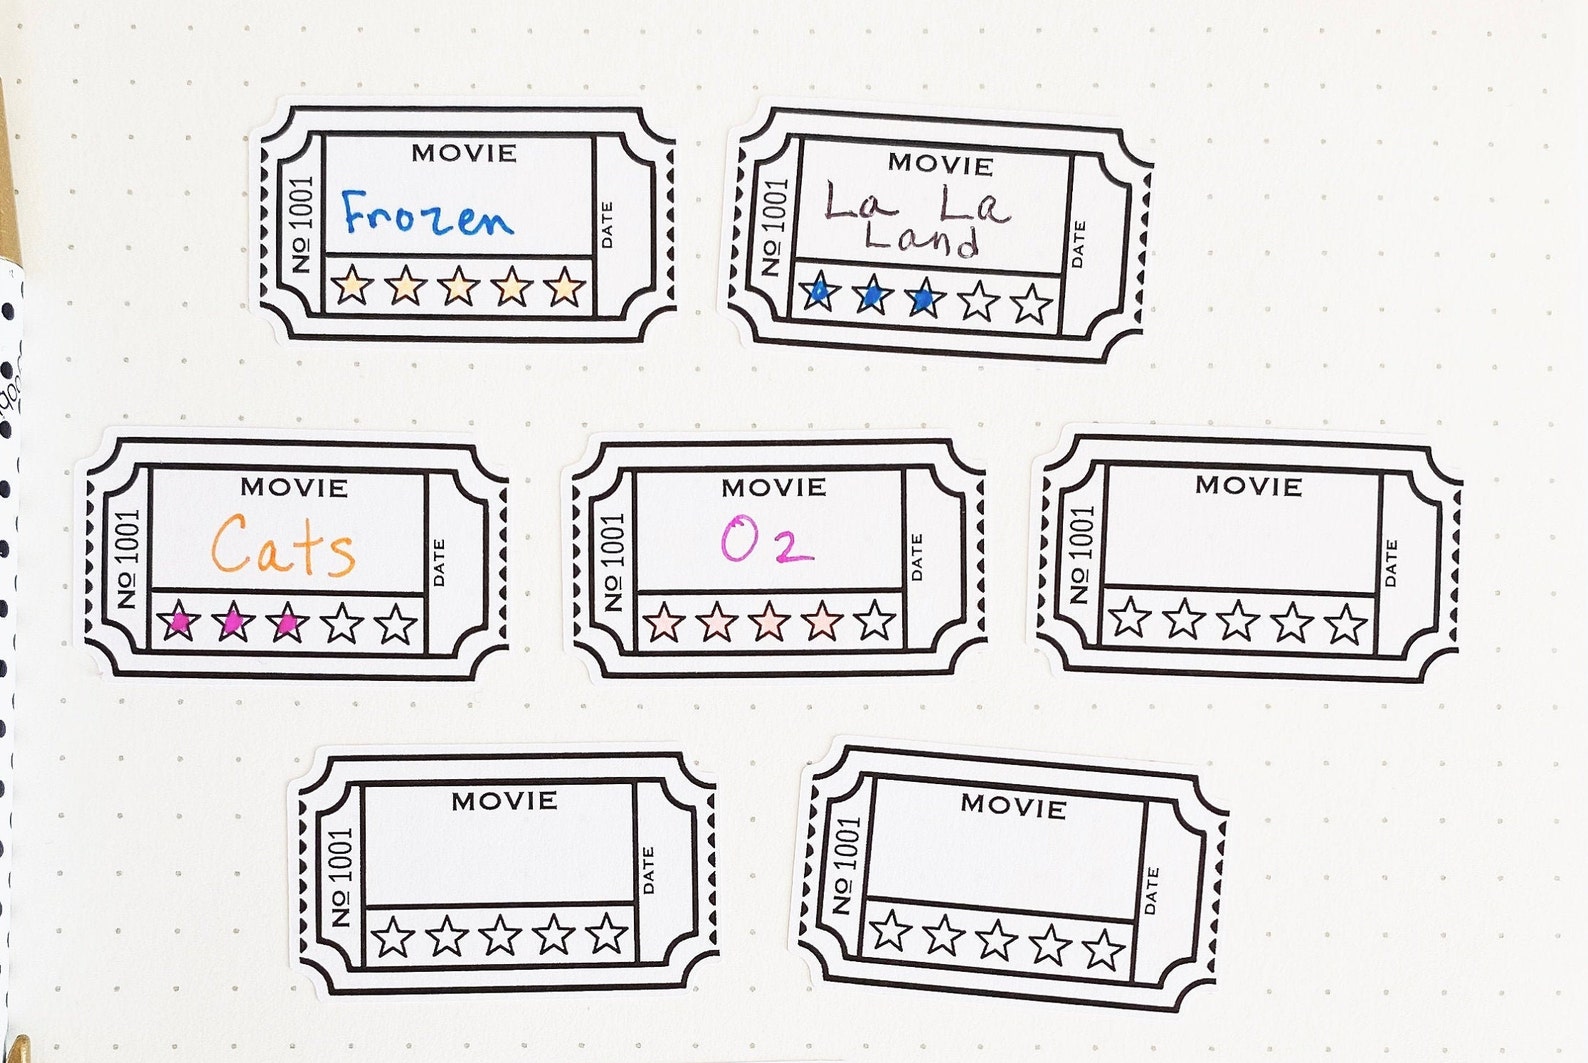 MOVIE
Frozen
No 1001
DATE
MOVIE
La La
Land
No 1001
DATE
MOVIE
Cats
No 1001
DATE
MOVIE
Oz
No 1001
DATE
MOVIE
No 1001
DATE
MOVIE
No 1001
DATE
MOVIE
No 1001
DATE